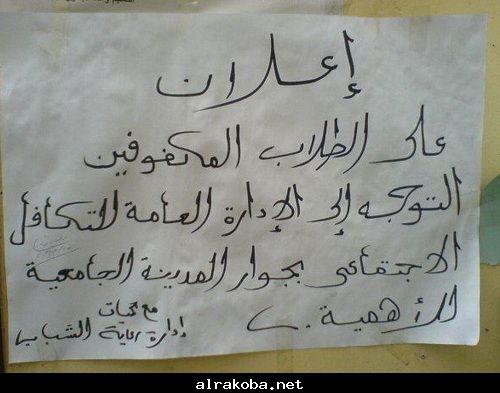 إعلان
على الطلاب المكفوفين
التوجه إلى الإدارة العامة للتكافل
الاجتماعى بجوار المدينة الجامعية
للأهمية .
مع تحيات
إدارة رعاية الشباب
alrakoba.net